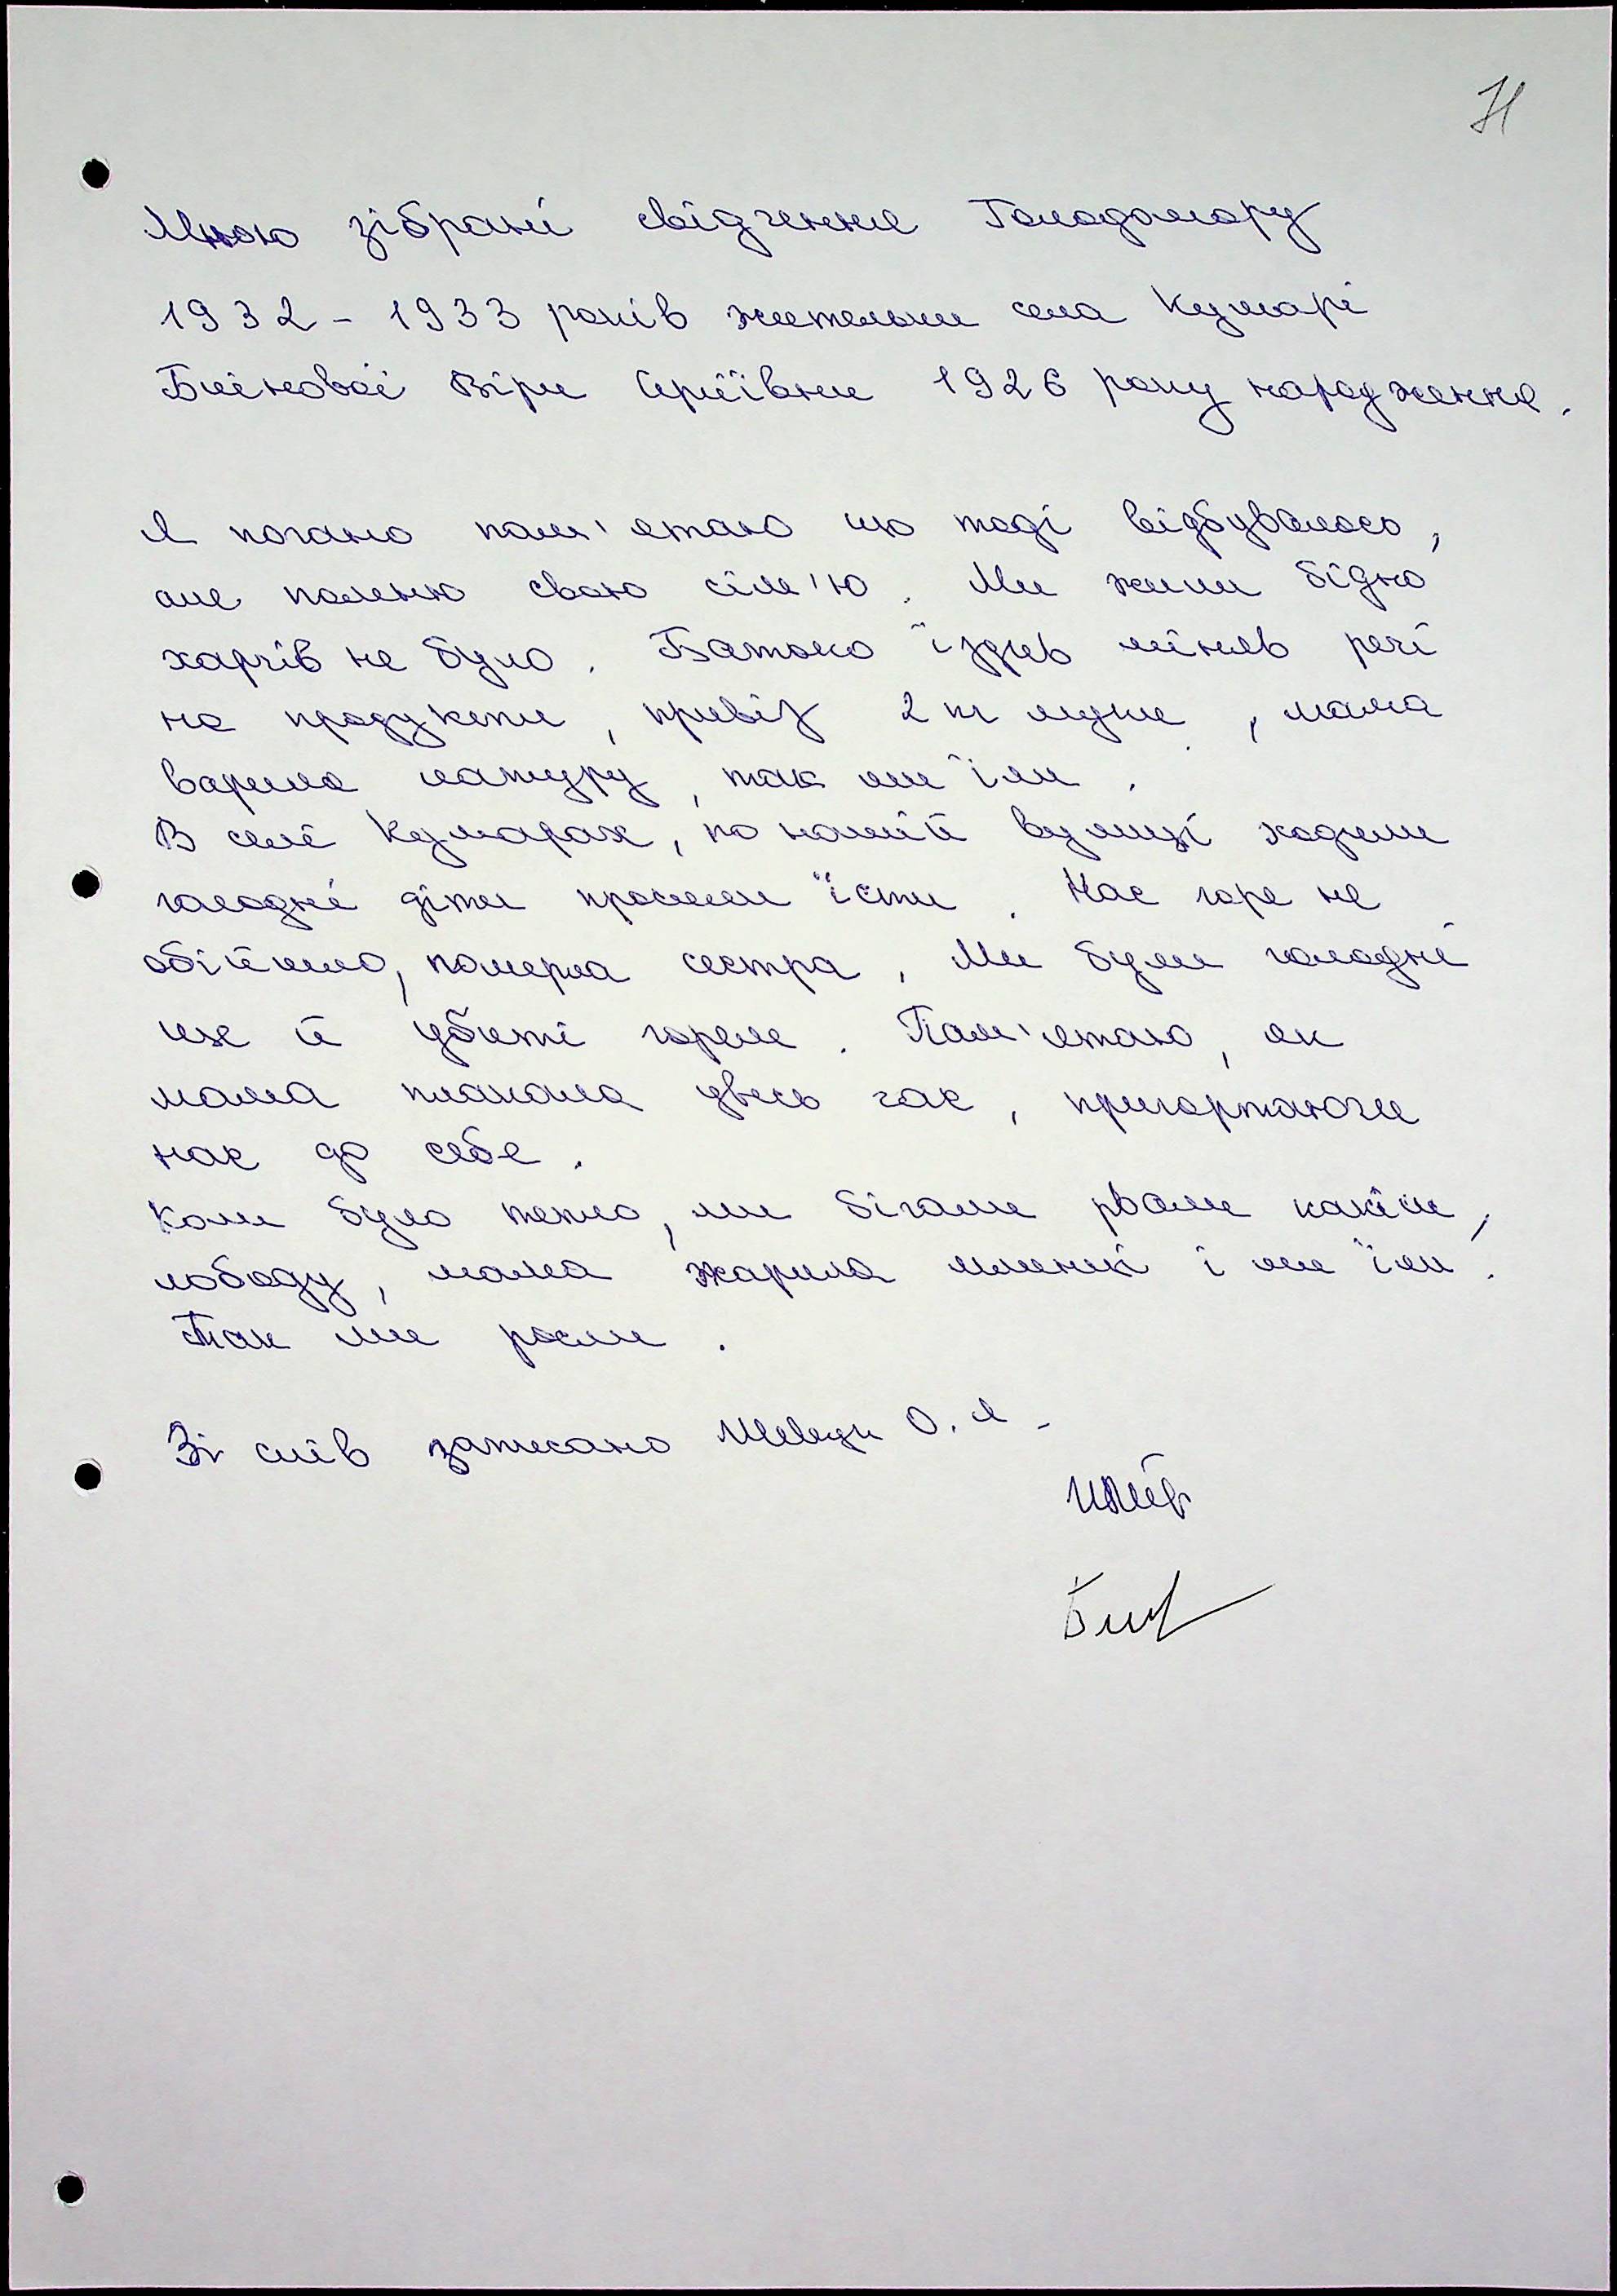 71
Мною зібрані свідчення Голодомору
1932 - 1933 років жительки села Кумарі
Блінової Віри Сергіївни 1926 року народження.
Я погано пам'ятаю що тоді відбувалося,
але помню свою сім'ю. Ми жили бідно
харчів не було. Батько їздив міняв речі
на продукти, привіз 2 кг муки, мама
варила затірку, так ми їли.
В селі Кумарах, по нашій вулиці ходили
голодні діти просили їсти. Нас горе не
обійшло, померла сестра. Ми були голодні
ще й убиті горем. Пам'ятаю, як
мама плакала увесь час, пригортаючи
нас до себе.
Коли було тепло, ми бігали рвали калачики,
лободу, мама жарила млинці і ми їли.
Так ми росли.
Зі слів записано О. Я.